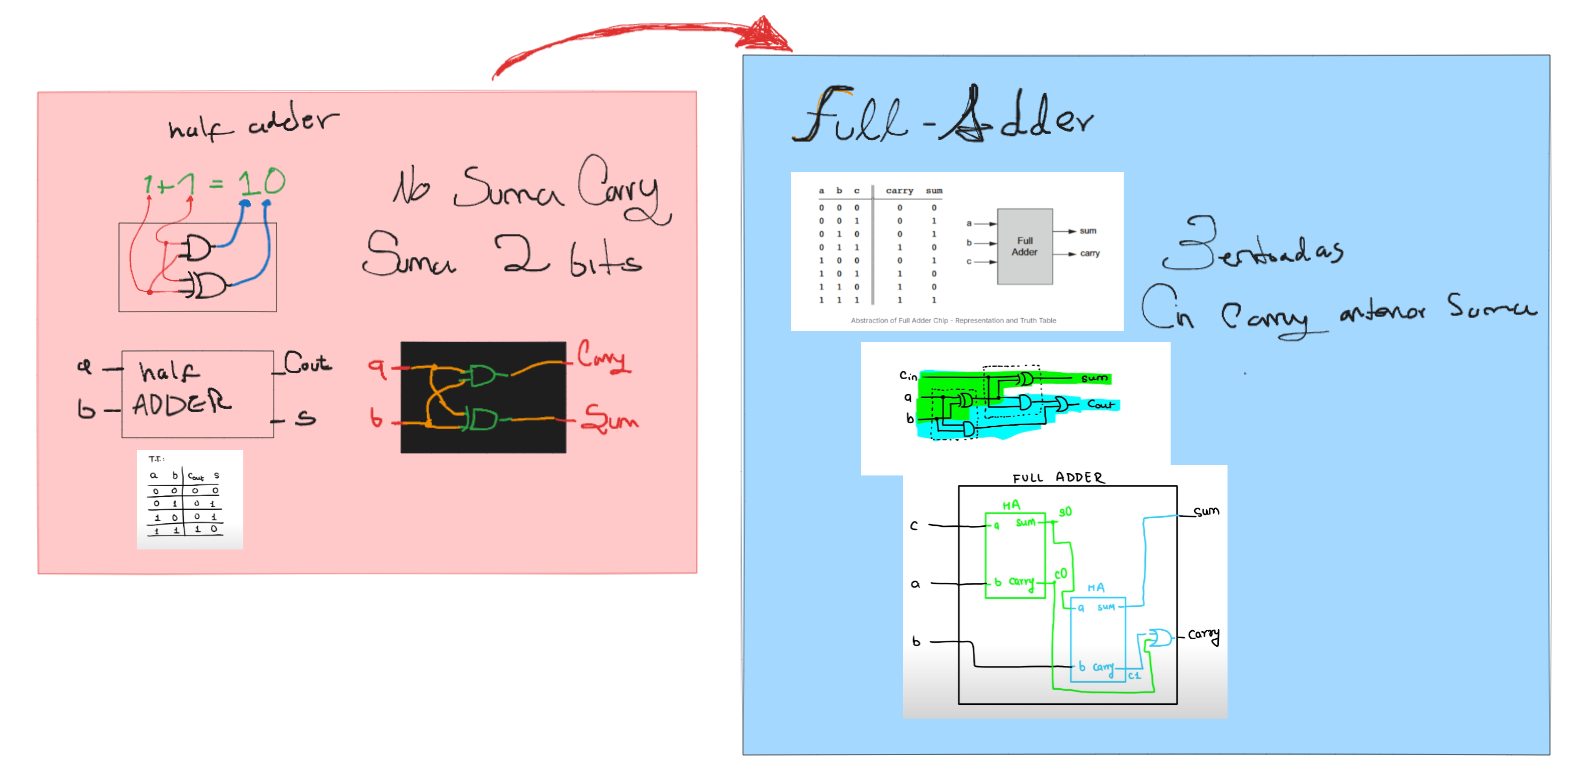 half adder
1+1 = 10
No Suma Carry
Suma 2 bits
a
b
half
ADDER
Cout
S
a
b
Carry
Sum
T.T.:
a b Cout s
0 0 0 0
0 1 0 1
1 0 0 1
1 1 1 0
Full-Adder
a b c carry sum
0 0 0 0 0
0 0 1 0 1
0 1 0 0 1
0 1 1 1 0
1 0 0 0 1
1 0 1 1 0
1 1 0 1 0
1 1 1 1 1
a
b
c
Full
Adder
sum
carry
Abstraction of Full Adder Chip - Representation and Truth Table
3 entradas
Cin Carry anterior Suma
Cin
a
b
sum
Cout
FULL ADDER
c
a
b
HA
a sum
b carry
s0
c0
HA
a sum
b carry
c1
sum
carry